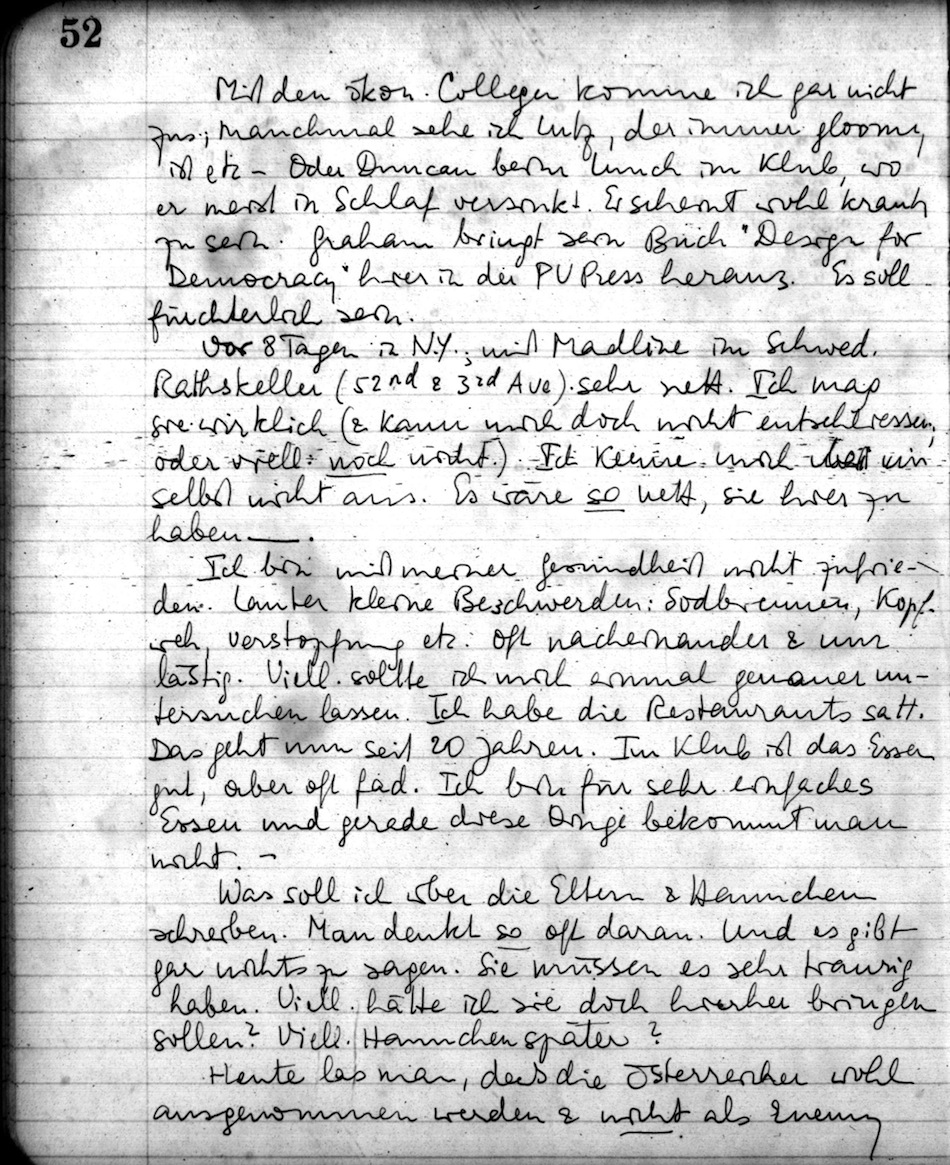 52
Mit den ökon. Collegen komme ich gar nicht
zus.; manchmal sehe ich Lutz, der immer gloomy
ist etc – Oder Duncan beim Lunch im Klub, wo
er meist in Schlaf versinkt. Er scheint wohl krank
zu sein. Graham bringt sein Buch "Design for
Democracy" hier in der PU Press heraus. Es soll
fürchterlich sein.
Vor 8 Tagen in N.Y.; mit Madline im Schwed.
Rathskeller (52nd & 3rd Ave). sehr nett. Ich mag
sie wirklich (& kann mich doch nicht entschliessen,
oder viell. noch nicht.) Ich kenne mich in
selbst nicht aus. Es wäre so nett, sie hier zu
haben —.
Ich bin mit meiner Gesundheit nicht zufrie-
den. Lauter kleine Beschwerden: Sodbrennen, Kopf-
weh, Verstopfung etc. Oft nacheinander & nur
lästig. Viell. sollte ich mich einmal genauer un-
tersuchen lassen. Ich habe die Restaurants satt.
Das geht nun seit 20 Jahren. Im Klub ist das Essen
gut, aber oft fad. Ich bin für sehr einfaches
Essen und gerade diese Dinge bekommt man
nicht. –
Was soll ich über die Eltern & Hannchen
schreiben. Man denkt so oft daran. Und es gibt
gar nichts zu sagen. Sie müssen es sehr traurig
haben. Viell. hätte ich sie doch hierher bringen
sollen? Viell. Hannchen später?
Heute las man, dass die Österreicher wohl
ausgenommen werden & nicht als Enemy